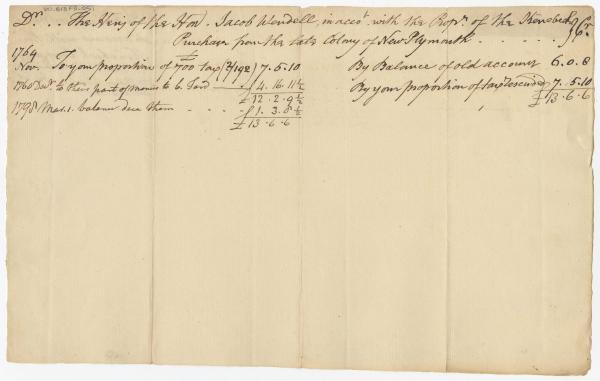 Dr. . . The Heirs of the Hon. Jacob Wendell, in acct. with the Propr. of the Kennebeck
Purchase from the late Colony of New Plymouth . . . . . Cr.
1764
Nov. To your proportion of 700 Tax (2/192) 7. 5. 10
1760 to their part of monies to G. 4. 16. 11½
£ 12. 2. 9½
1798 Mar. 1. balance due them . . . . 1. 3. 8½
£ 13. 6. 6
By Balance of old account 6. 0. 8
By your proportion of 7. 5. 10
£ 13. 6. 6